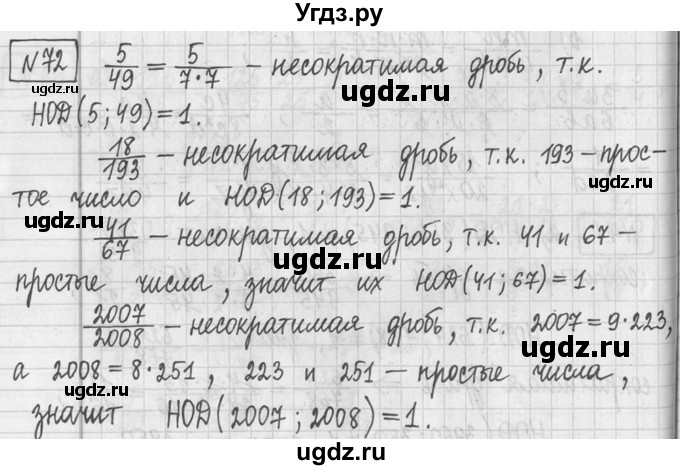 Угдз.ру
№72 5/49 = 5/7·7 – несократимая дробь, т.к.
ugdz.ru ugdz.ru
НОД(5;49)=1.
18/193 – несократимая дробь, т.к. 193 – прос-
ugdz.ru
тое число и НОД(18;193)=1.
ugdz.ru
41/67 – несократимая дробь, т.к. 41 и 67 –
ugdz.ru
простые числа, значит их НОД(41;67)=1.
2007/2008 – несократимая дробь, т.к. 2007=9·223,
ugdz.ru
а 2008=8·251, 223 и 251 – простые числа,
ugdz.ru
значит НОД(2007;2008)=1.
ugdz.ru